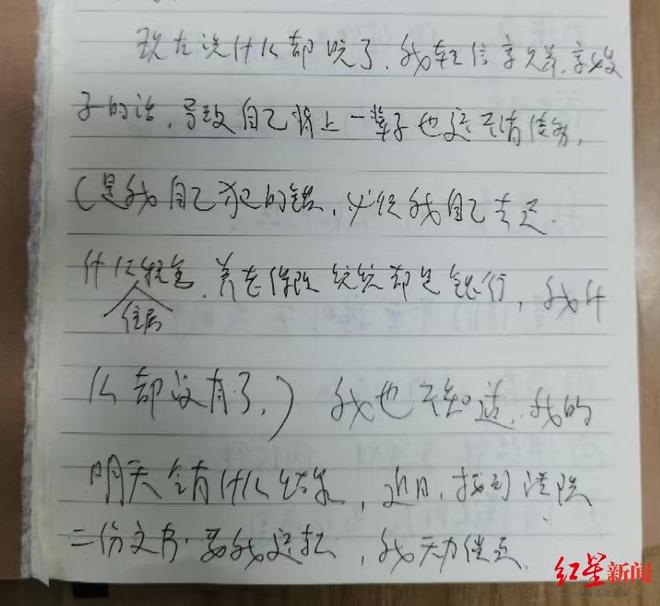 现在说什么都晚了，我轻信亲兄弟，亲嫂
子的话，导致自己背上一辈子也还不清债务，
（是我自己犯的错，必须我自己去还．
什么租金，养老保险统统都是银行，我什
住房
么都没有了，）我也不知道，我的
明天会有什么结果，近日，接到法院
二份文书，要我还款，我无力偿还．
红星新闻